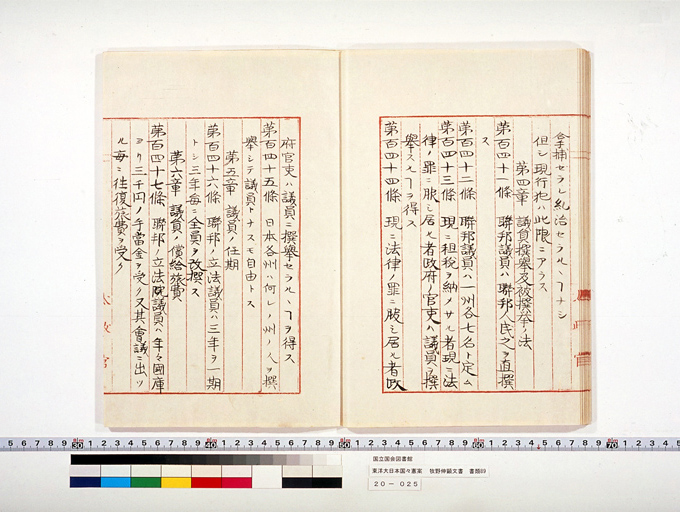 拿捕セラレ糺治セラルヽヿナシ
但シ現行犯ハ此限ニアラス
第四章 議員撰擧及被撰挙ノ法
第百四十一條 聯邦議員ハ聯邦人民之ヲ直撰
ス
第百四十二條 聯邦議員ハ一州各七名ト定ム
第百四十三條 現ニ租税ヲ納メサル者現ニ法
律ノ罪ニ服シ居ル者政府ノ官吏ハ議員ヲ撰
擧スルヿヲ得ス
第百四十四條 現ニ法律ノ罪ニ服シ居ル者政
府官吏ハ議員ニ撰擧セラルヽヿヲ得ス
第百四十五條 日本各州ハ何レノ州ノ人ヲ撰
擧シテ議員トナスモ自由トス
第五章 議員ノ任期
第百四十六條 聯邦ノ立法議員ハ三年ヲ一期
トシ三年毎ニ全員ヲ改撰ス
第六章 議員ノ償給旅費
第百四十七條 聯邦ノ立法院議員ハ年々國庫
ヨリ三千円ノ手當金ヲ受ク又其會議ニ出ツ
ル毎ニ往復旅費ヲ受ク
太政官
5 6 7 8 9 30 1 2 3 4 5 6 7 8 9 40 1 2 3 4 5 6 7 8 9 50 1 2 3 4 5 6 7 8 9 60 1 2 3 4 5 6 7 8 9 70 1 2 3 4 5
国立国会図書館
東洋大日本国々憲案 牧野伸顕文書 書類69
20-025